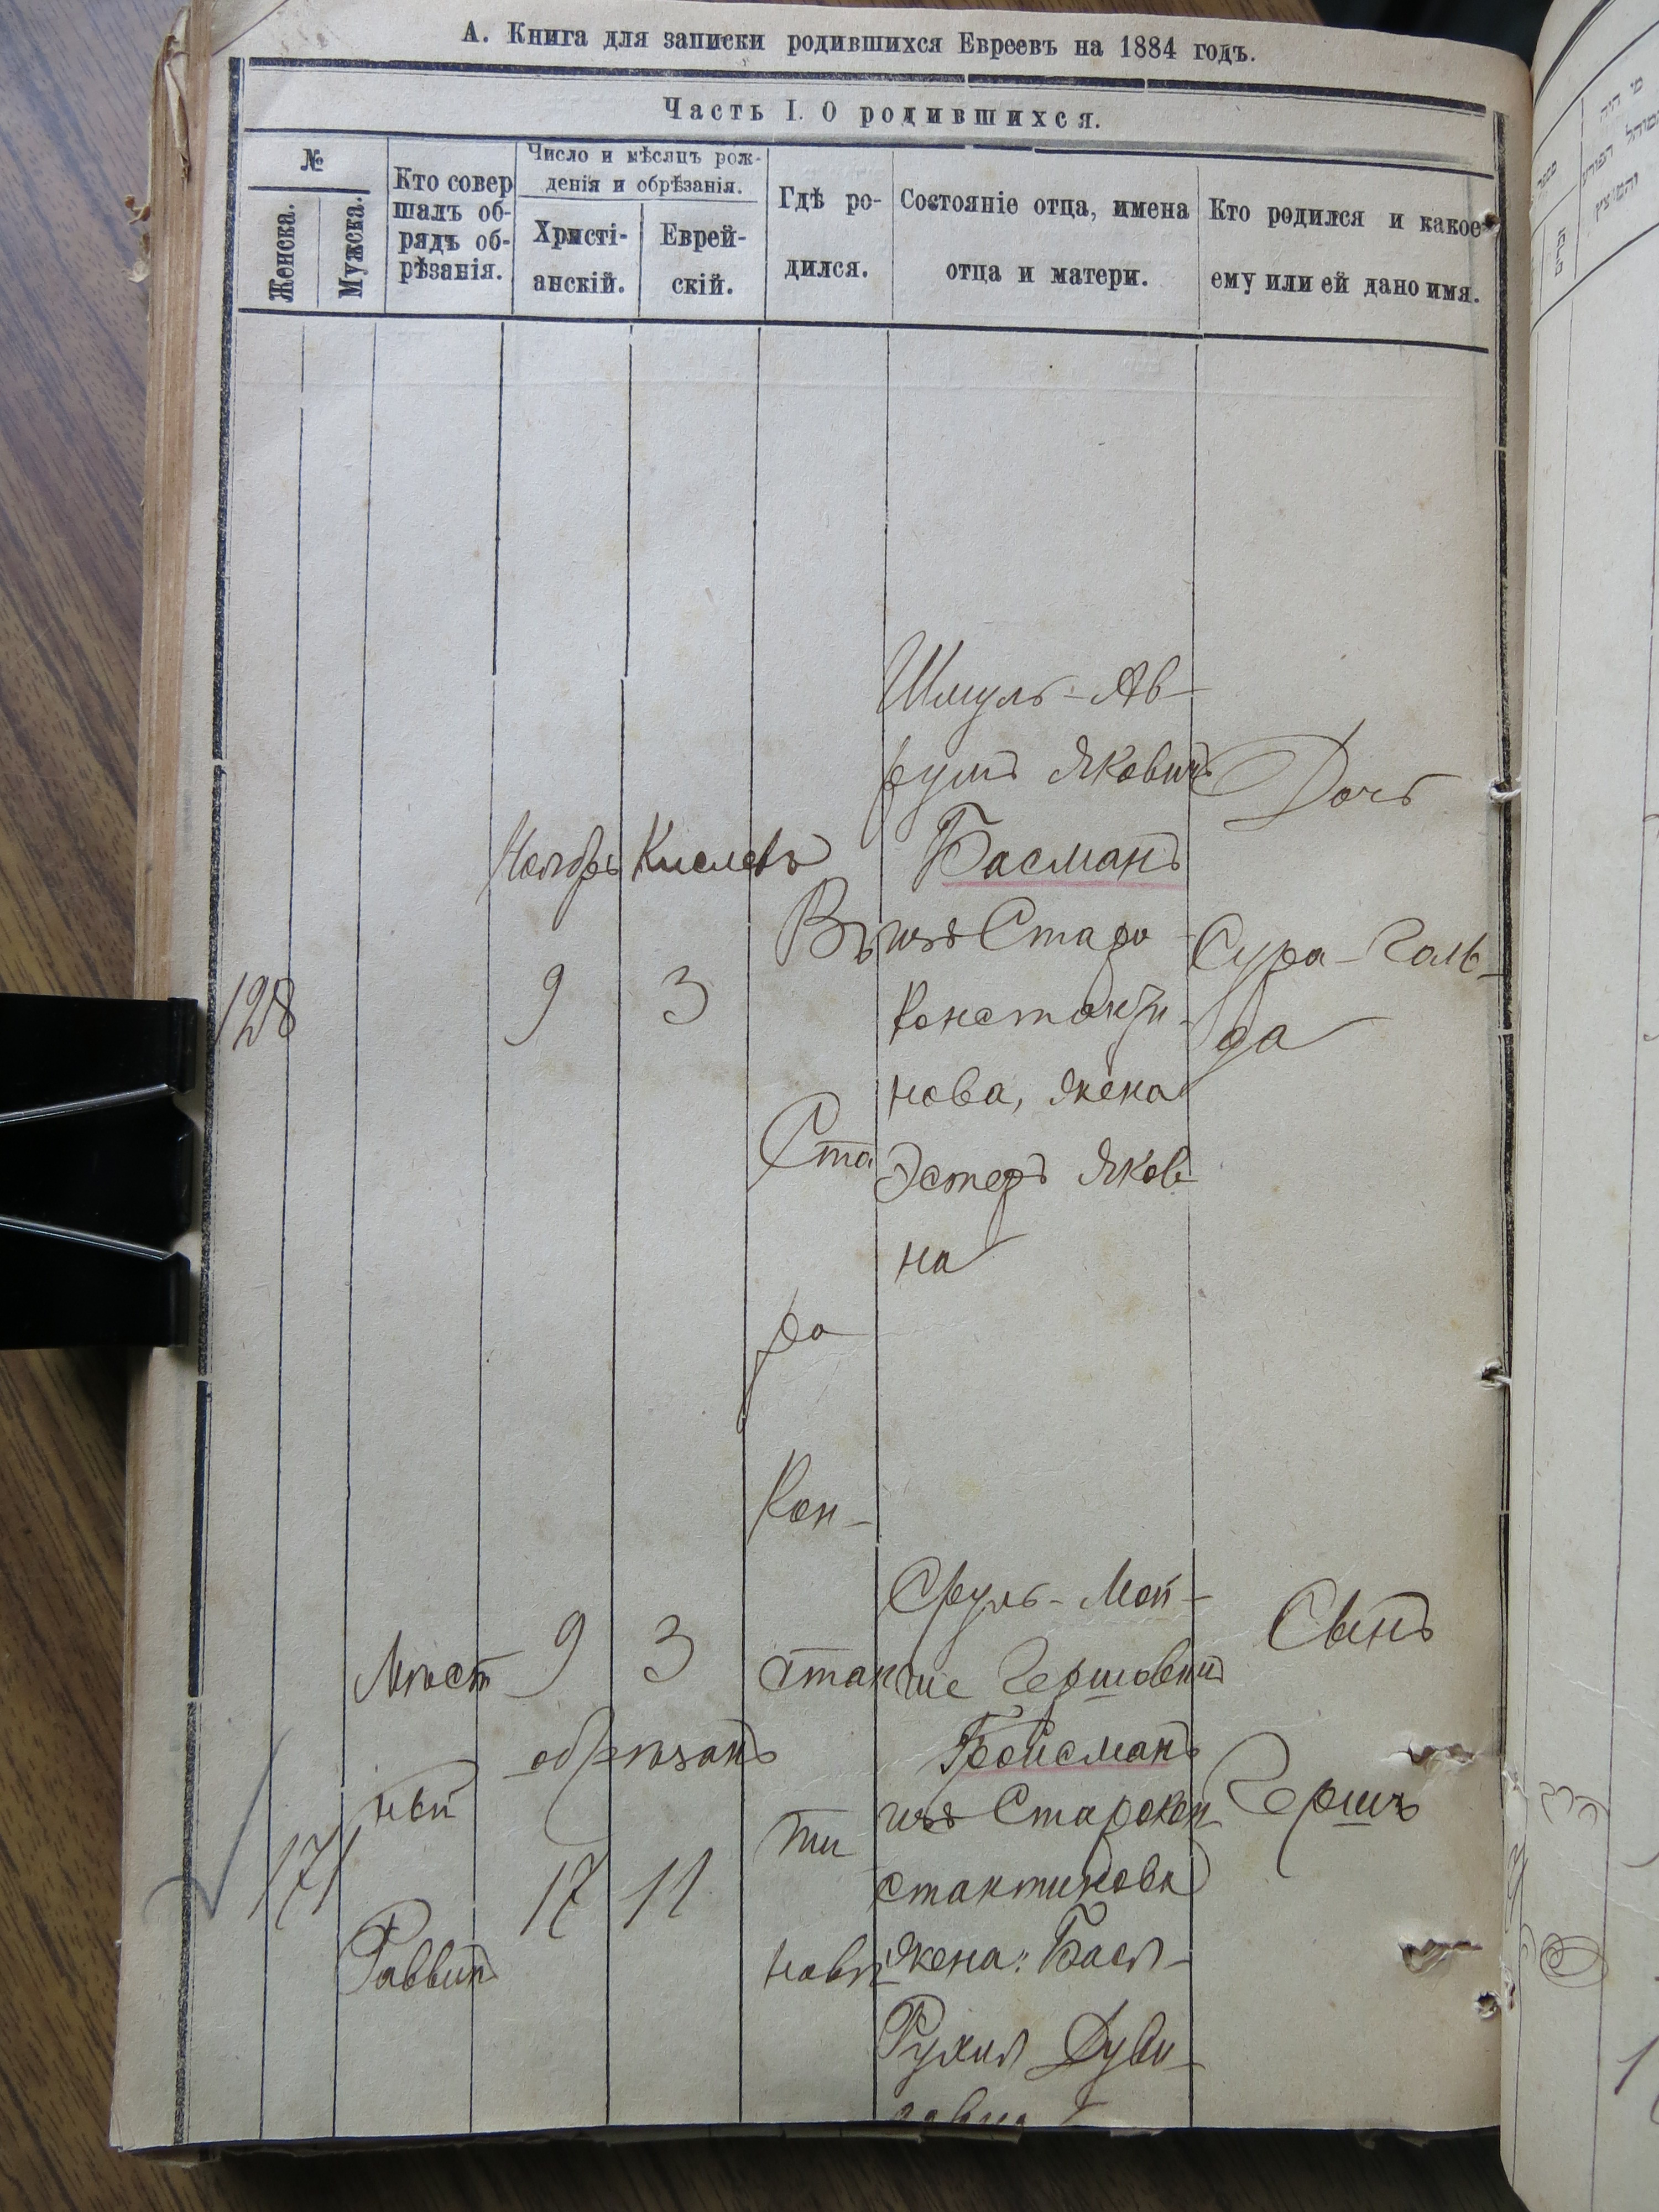 А. Книга для записки родившихся Евреевъ на 1884 годъ.
Часть I. О родившихся.
№
Женска.
Мужска.
Кто совер
шалъ об-
рядъ об-
рѣзанія.
Число и мѣсяцъ рож-
денія и обрѣзанія.
Христі-
анскій.
Еврей-
скій.
Гдѣ ро-
дился.
Состояніе отца, имена
отца и матери.
Кто родился и какое
ему или ей дано имя.
128
Ноябрь
9
Кислевъ
3
Въ
Ста
ро
Кон-
стан
ти
новѣ
Шмуль-Ав-
румъ Яковичъ
Басманъ
изъ Старо-
константи-
нова, жена
Эстеръ Яков
на
Дочь
Сура-Голь-
да
171
Мѣст
ный
Раввинъ
9
3
обрѣзанъ
17
11
Сруль-Мой-
ше Гершовичъ
Бойсманъ
изъ Старокон-
стантинова
жена: Бася-
Рухля Дуви-
довна
Сынъ
Гершъ